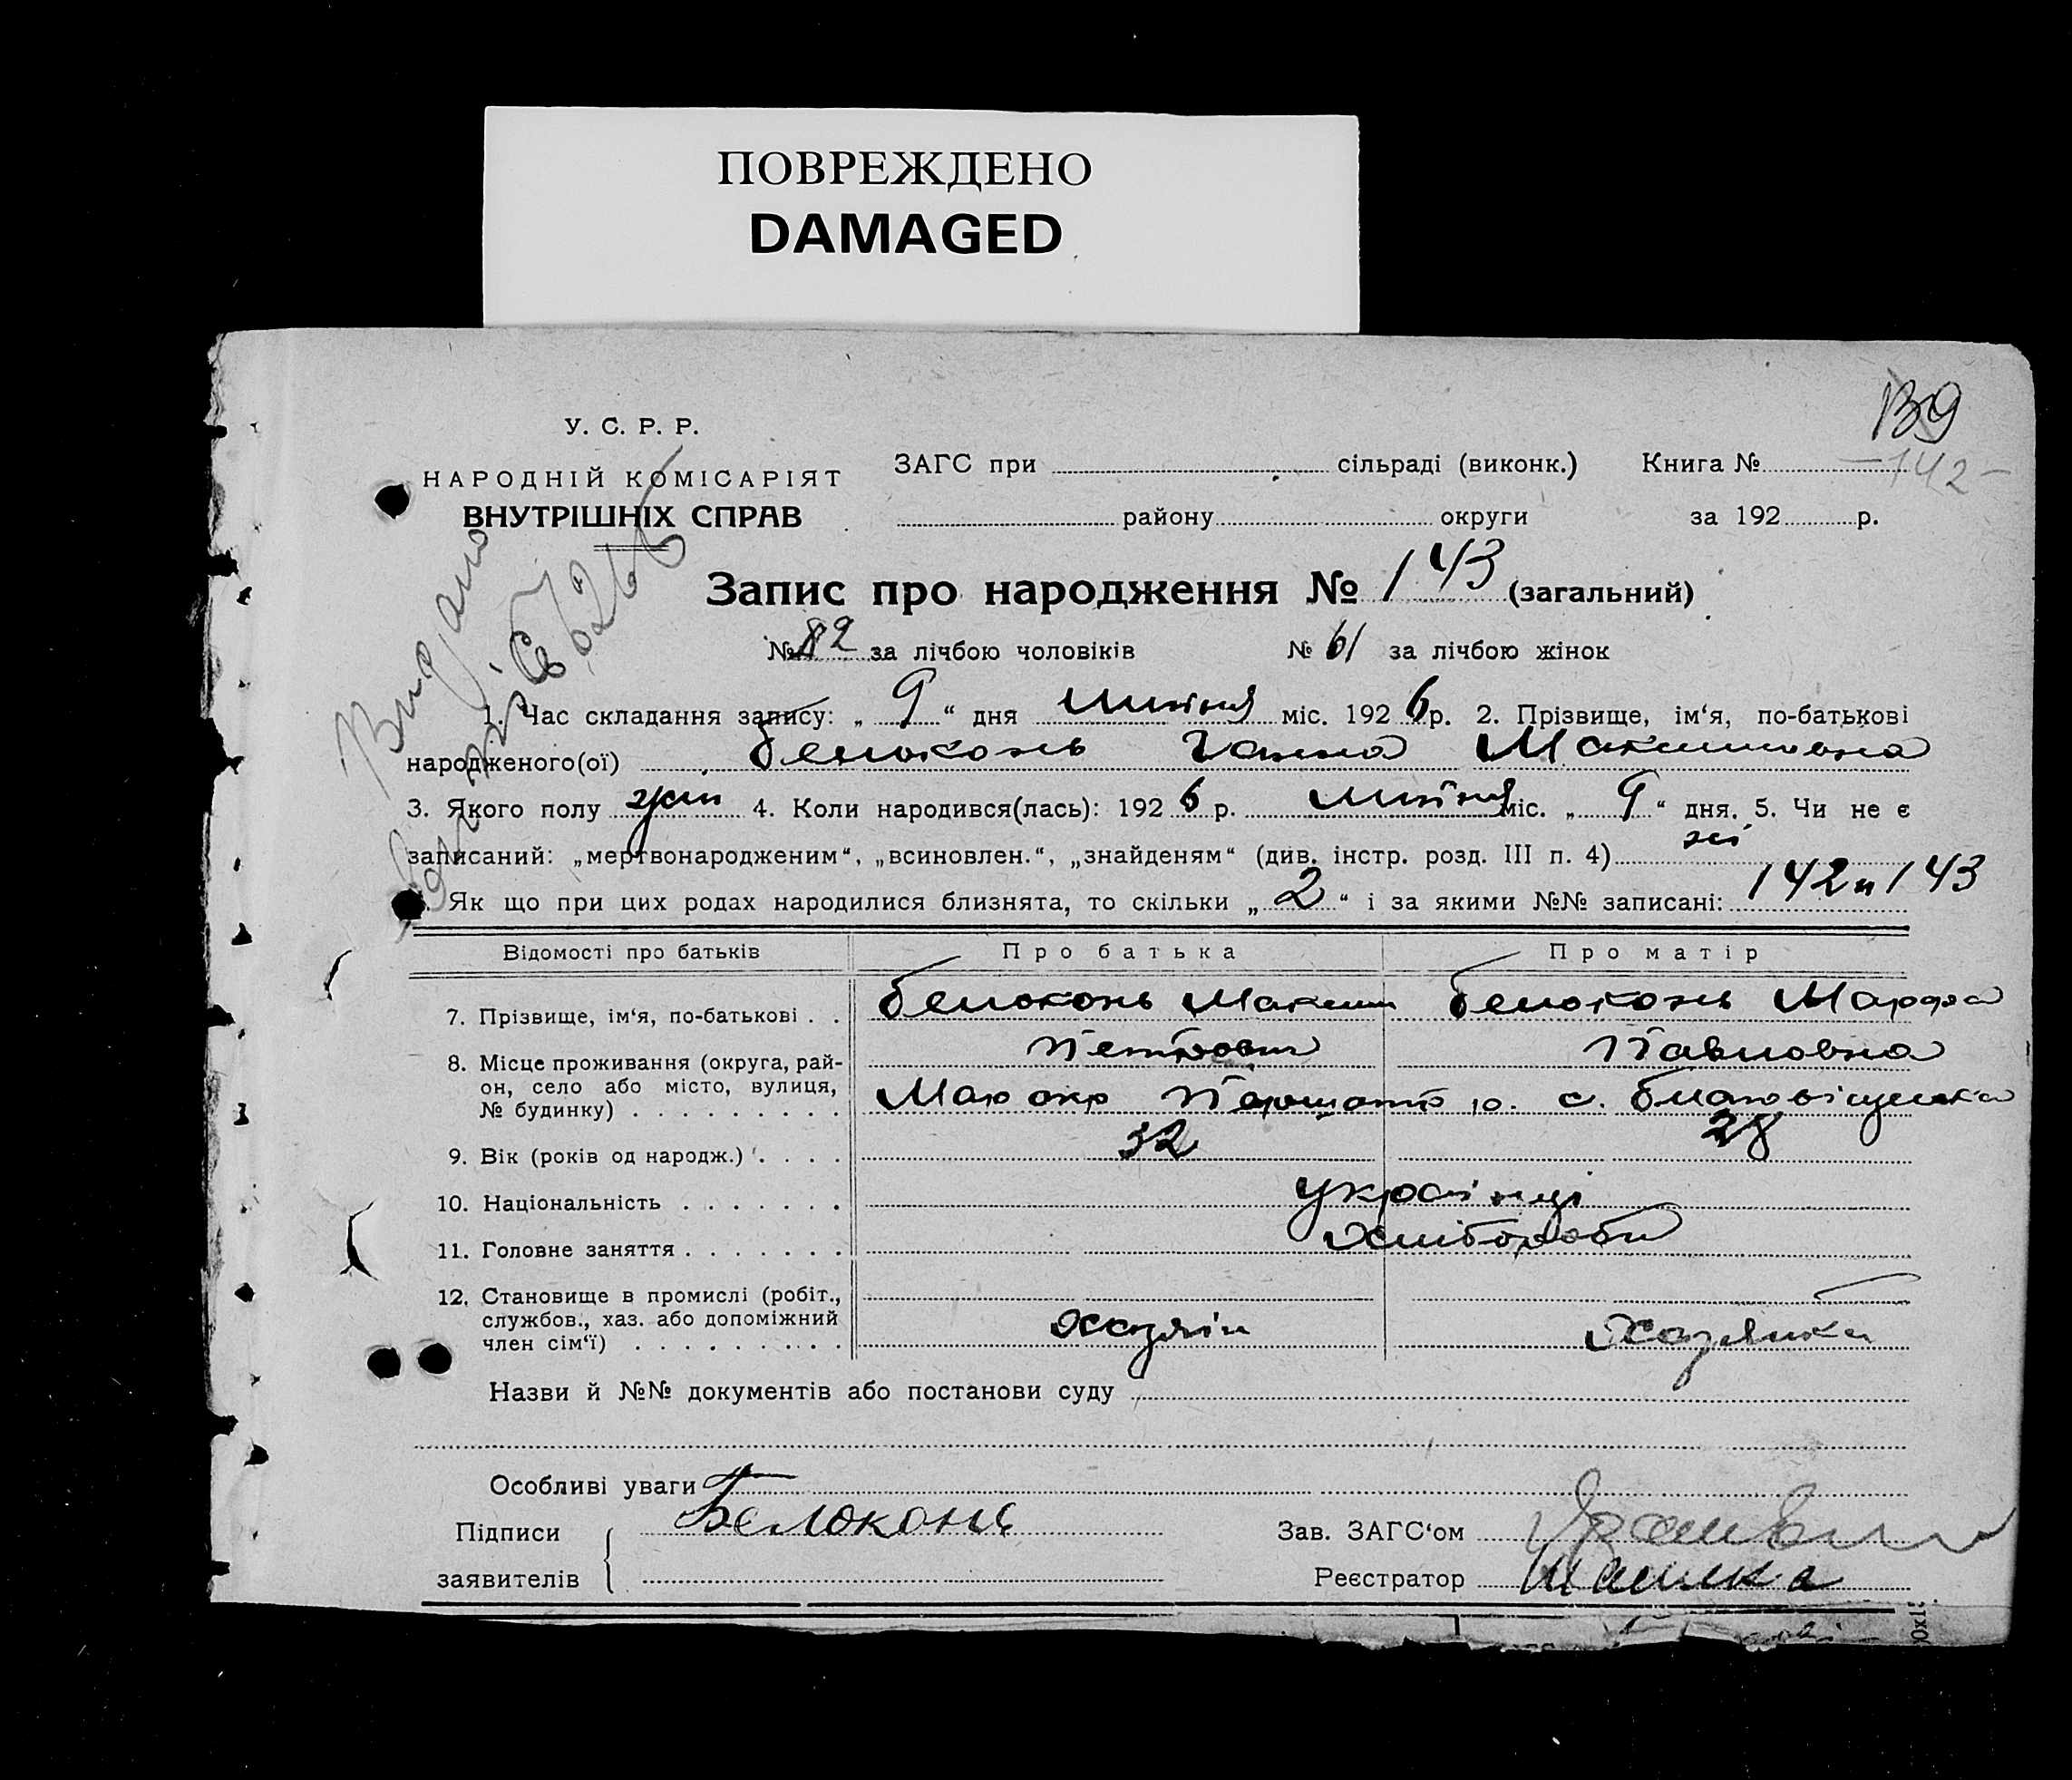 ПОВРЕЖДЕНО
DAMAGED
139
У. С. Р. Р.
НАРОДНІЙ КОМІСАРІЯТ
ВНУТРІШНІХ СПРАВ
ЗАГС при сільраді (виконк.) Книга № -142-
району округи за 192 р.
Видано
Запис про народження № 143 (загальний)
№ 82 за лічбою чоловіків № 61 за лічбою жінок
1. Час складання запису: „ 9 “ дня липня міс. 1926 р. 2. Прізвище, ім‘я, по-батькові
народженого(ої) Белоконь Ганна Максимовна
3. Якого полу жін 4. Коли народився(лась): 1926 р. липня міс. „ 9 “ дня. 5. Чи не є
записаний: „мертвонародженим“, „всиновлен.“, „знайденям“ (див. інстр. розд. III п. 4) ні
. Як що при цих родах народилися близнята, то скільки „ 2 “ і за якими №№ записані: 142 и 143
Відомості про батьків Про батька Про матір
7. Прізвище, ім‘я, по-батькові . . Белоконь Максим Петрович Белоконь Марфа Павловна
8. Місце проживання (округа, рай-
он, село або місто, вулиця,
№ будинку) . . . . . . . . . Мар окр р. с. Благовіщенка
9. Вік (років од народж.) . . . . 32 28
10. Національність . . . . . . . українці
11. Головне заняття . . . . . . . хлібороби
12. Становище в промислі (робіт.,
службов., хаз. або допоміжний
член сім‘ї) . . . . . . . . . . Хазяїн Хазяйка
Назви й №№ документів або постанови суду
Особливі уваги
Підписи Белоконь Зав. ЗАГС‘ом
заявителів Реєстратор